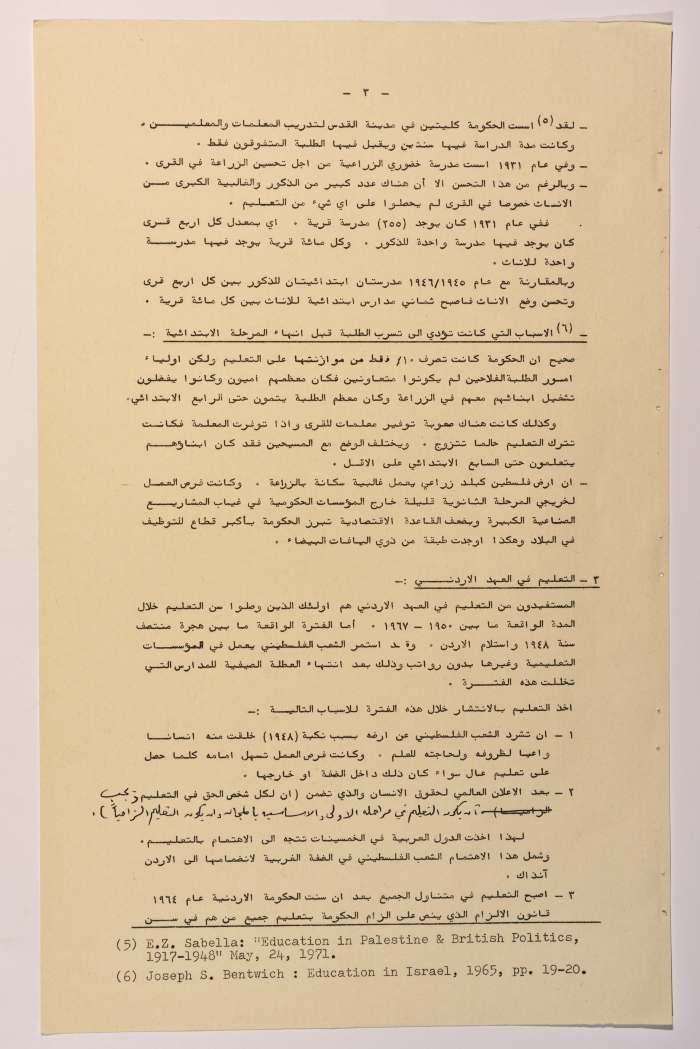 - ٣ -
- لقد (٥) اسست الحكومة كليتين في مدينة القدس لتدريب المعلمات والمعلميـــن .
وكانت مدة الدراسة فيها سنتين ويقبل فيها الطلبة المتفوقون فقط .
- وفي عام ١٩٣١ اسست مدرسة خضوري الزراعية من اجل تحسين الزراعة في القرى .
- وبالرغم من هذا التحسن الا أن هناك عدد كبير من الذكور والغالبية الكبرى مــن
الاناث خصوصا في القرى لم يحصلوا على اي شيء من التعليم .
ففي عام ١٩٣١ كان يوجد (٢٥٥) مدرسة قرية . اي بمعدل كل اربع قسرى
كان يوجد فيها مدرسة واحدة للذكور . وكل مائة قرية يوجد فيها مدرســة
واحدة للاناث .
وبالمقارنة مع عام ١٩٤٦/١٩٤٥ مدرستان ابتدائيتان للذكور بين كل اربع قرى
وتحسن وضع الاناث فاصبح ثماني مدارس ابتدائية للاناث بين كل مائة قرية .
- (٦) الاسباب التي كانت تؤدي الى تسرب الطلبة قبل انهاء المرحلة الابتدائية :-
صحيح ان الحكومة كانت تصرف ١٠٪ فقط من موازنتها على التعليم ولكن اولياء
امور الطلبة الفلاحين لم يكونوا متعاونين فكان معظمهم اميون وكانوا يفضلون
تشغيل ابنائهم معهم في الزراعة وكان معظم الطلبة يتمون حتى الرابع الابتدائي.
وكذلك كانت هناك صعوبة توفير معلمات للقرى واذا توفرت المعلمة فكانــت
تترك التعليم حالما تتزوج . ويختلف الوضع مع المسيحين فقد كان ابناؤهــم
يتعلمون حتى السابع الابتدائي على الاقل .
- ان ارض فلسطين كبلد زراعي يعمل غالبية سكانة بالزراعة . وكانت فرص العمــل
لخريجي المرحلة الثانوية قليلة خارج المؤسسات الحكومية في غياب المشاريــع
الصناعية الكبيرة وبضعف القاعدة الاقتصادية تبرز الحكومة بأكبر قطاع للتوظيف
في البلاد وهكذا اوجدت طبقة من ذوي الياقات البيضاء .
٣ - التعليم في العهد الاردنـــــي :-
المستفيدون من التعليم في العهد الاردني هم اولئك الذين وصلوا سن التعليم خلال
المدة الواقعة ما بين ١٩٥٠ - ١٩٦٧ . أما الفترة الواقعة ما بين هجرة منتصف
سنة ١٩٤٨ واستلام الاردن . وقد استمر الشعب الفلسطيني يعمل في المؤسسات
التعليمية وغيرها بدون رواتب وذلك بعد انتهاء العطلة الصيفية للمدارس التـي
تخللت هذه الفتــــرة .
اخذ التعليم بالانتشار خلال هذه الفترة للاسباب التاليـــة :-
١ - ان تشرد الشعب الفلسطيني عن ارضه بسبب نكبة (١٩٤٨) خلقت منه انسانــا
واعيا لظروفه ولحاجته للعلم . وكانت فرص العمل تسهل امامه كلما حصل
على تعليم عال سواء كان ذلك داخل الضفة او خارجها .
٢ - بعد الاعلان العالمي لحقوق الانسان والذي تضمن (ان لكل شخص الحق في التعليم ويجب
أن يكون التعليم في مراحله الاولى والاساسية بالمجان وان يكون التعليم الزامياً ) .
لهذا اخذت الدول العربية في الخمسينات تتجه الى الاهتمام بالتعليم .
وشمل هذا الاهتمام الشعب الفلسطيني في الضفة الغربية لانضمامها الى الاردن
آنذاك .
٣ - اصبح التعليم في متناول الجميع بعد ان سنت الحكومة الاردنية عام ١٩٦٤
قانون الالزام الذي ينص على الزام الحكومة بتعليم جميع من هم في ســن
(5) E.Z. Sabella: "Education in Palestine & British Politics,
1917-1948" May, 24, 1971.
(6) Joseph S. Bentwich : Education in Israel, 1965, pp. 19-20.